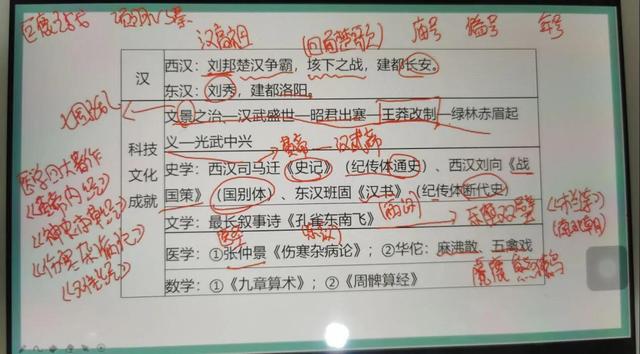 汉高祖 庙号 谥号 年号
汉
西汉：刘邦楚汉争霸，垓下之战，建都长安。
东汉：刘秀，建都洛阳。
文景之治—汉武盛世—昭君出塞—王莽改制—绿林赤眉起
义—光武中兴
黄帝—汉武帝
科技
文化
成就
史学：西汉司马迁《史记》（纪传体通史）、西汉刘向《战
国策》（国别体）、东汉班固《汉书》（纪传体断代史）
文学：最长叙事诗《孔雀东南飞》
乐府双璧
《木兰辞》
医圣
医学：①张仲景《伤寒杂病论》；②华佗：麻沸散、五禽戏
数学：①《九章算术》；②《周髀算经》
医学四大著作
《黄帝内经》
《神农本草经》
《伤寒杂病论》